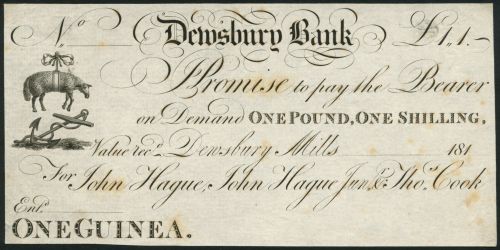 No Dewsbury Bank £1,1-
Promise to pay the Bearer
on Demand ONE POUND, ONE SHILLING,
Value rec.d Dewsbury Mills 181
For John Hague, John Hague Jun.r & Tho.s Cook
Ent.d
ONE GUINEA.